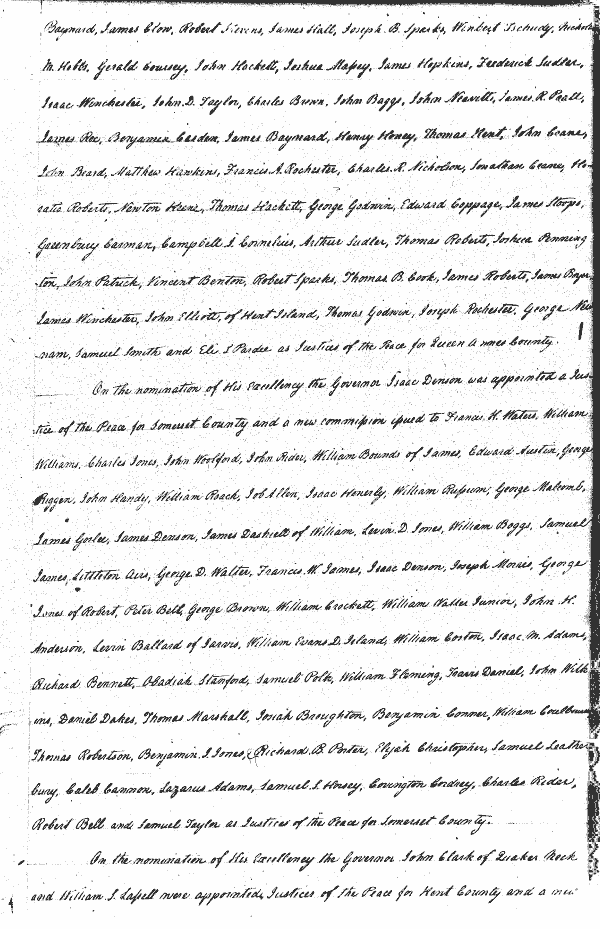 Baynard, James Clow, Robert Stevens, James Hall, Joseph B. Sparks, Winbert Tschudy, Nicholas
M. Hobbs, Gerald Coursey, John Hackett, Joshua Massey, James Hopkins, Frederick Sudler,
Isaac Winchester, John D. Taylor, Charles Brown, John Baggs, John Neavitt, James R. Pratt,
James Roe, Benjamin Carden, James Baynard, Henry Honey, Thomas Kent, John Crane,
John Beard, Matthew Hawkins, Francis A. Rochester, Charles R. Nicholson, Jonathan Crane, Ho-
ratio Roberts, Newton Keene, Thomas Hackett, George Godwin, Edward Coppage, James Stoops,
Greenbury Carman, Campbell S. Cornelius, Arthur Sudler, Thomas Roberts, Joshua Penning
ton, John Patrick, Vincent Benton, Robert Sparks, Thomas B. Cook, James Roberts, James
James Winchester, John Elliott, of Kent Island, Thomas Godwin, Joseph Rochester, George New
nam, Samuel Smith and Eli S. Pardee as Justices of the Peace for Queen Annes County.
On the nomination of His Excellency the Governor Isaac Denson was appointed a Jus-
tice of the Peace for Somerset County and a new commission issued to Francis H. Waters, William
Williams, Charles Jones, John Woolford, John Rider, William Bounds of James, Edward Austin, George
Riggen, John Handy, William Roach, Job Allen, Isaac Henerly, William Russum, George Malcomb,
James Goslee, James Denson, James Dashiell of William, Levin D. Jones, William Boggs, Samuel
James, Littleton Airs, George D. Walter, Francis W. James, Isaac Denson, Joseph Morris, George
Jones of Robert, Peter Bell, George Brown, William Crockett, William Waller Junior, John H.
Anderson, Levin Ballard of Jarvis, William Evans D. Island, William Coston, Isaac M. Adams,
Richard Bennett, Obadiah Stanford, Samuel Polk, William Fleming, Travis Daniel, John Wilk
ins, Daniel Dakes, Thomas Marshall, Josiah Broughton, Benjamin Conner, William Coulbourn
Thomas Robertson, Benjamin I. Jones, Richard B. Porter, Elijah Christopher, Samuel Leather
bury, Caleb Cannon, Lazarus Adams, Samuel S. Horsey, Covington Cordrey, Charles Rider,
Robert Bell and Samuel Taylor as Justices of the Peace for Somerset County.
On the nomination of His Excellency the Governor John Clark of Quaker Neck
and William S. Lassell were appointed Justices of the Peace for Kent County and a new